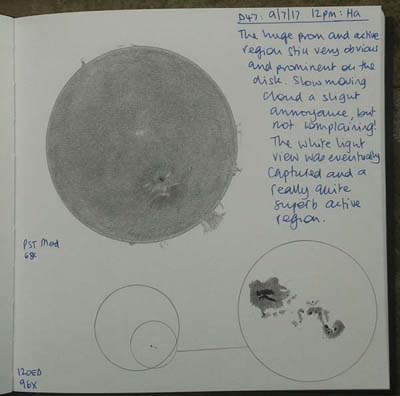 D47: 9/7/17 12pm: Ha
The huge prom and active
region still very obvious
and prominent on the
disk. Slow moving
cloud a slight
annoyance, but
not complaining!
The white light
view was eventually
captured and a
really quite
superb active
region.
PST Mod
68x
120ED
96x